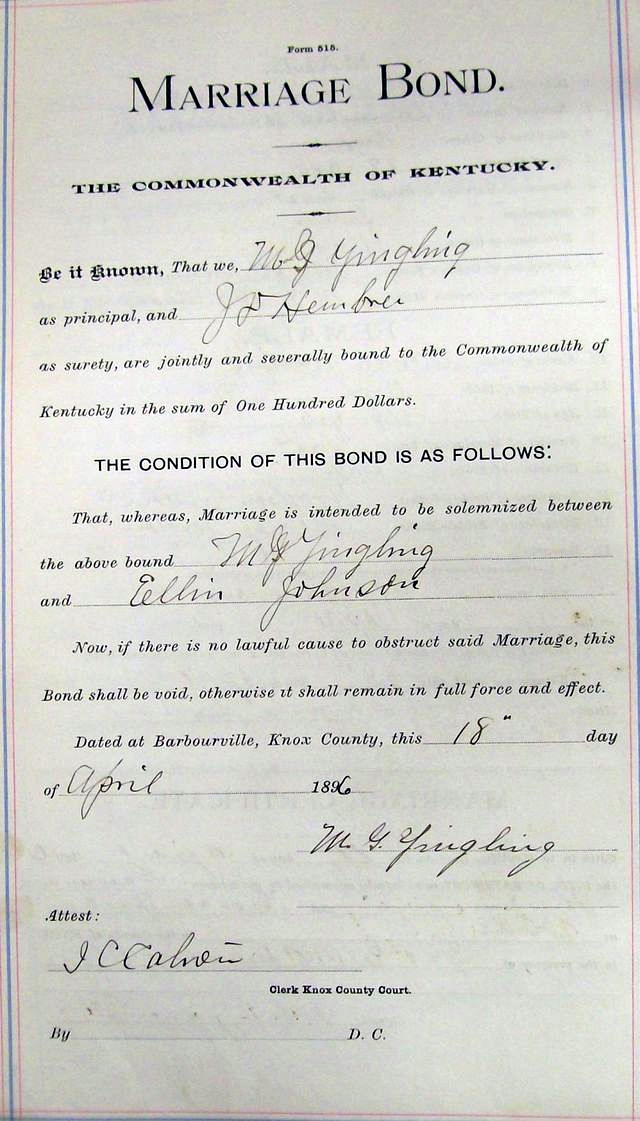 Form 515.
MARRIAGE BOND.
THE COMMONWEALTH OF KENTUCKY.
Be it Known, That we, M G Yingling
as principal, and J D Hembree
as surety, are jointly and severally bound to the Commonwealth of
Kentucky in the sum of One Hundred Dollars.
THE CONDITION OF THIS BOND IS AS FOLLOWS:
That, whereas, Marriage is intended to be solemnized between
the above bound M G Yingling
and Eellin Johnson
Now, if there is no lawful cause to obstruct said Marriage, this
Bond shall be void, otherwise it shall remain in full force and effect.
Dated at Barbourville, Knox County, this 18" day
of April 1896
M. G. Yingling
Attest:
Clerk Knox County Court.
By D. C.